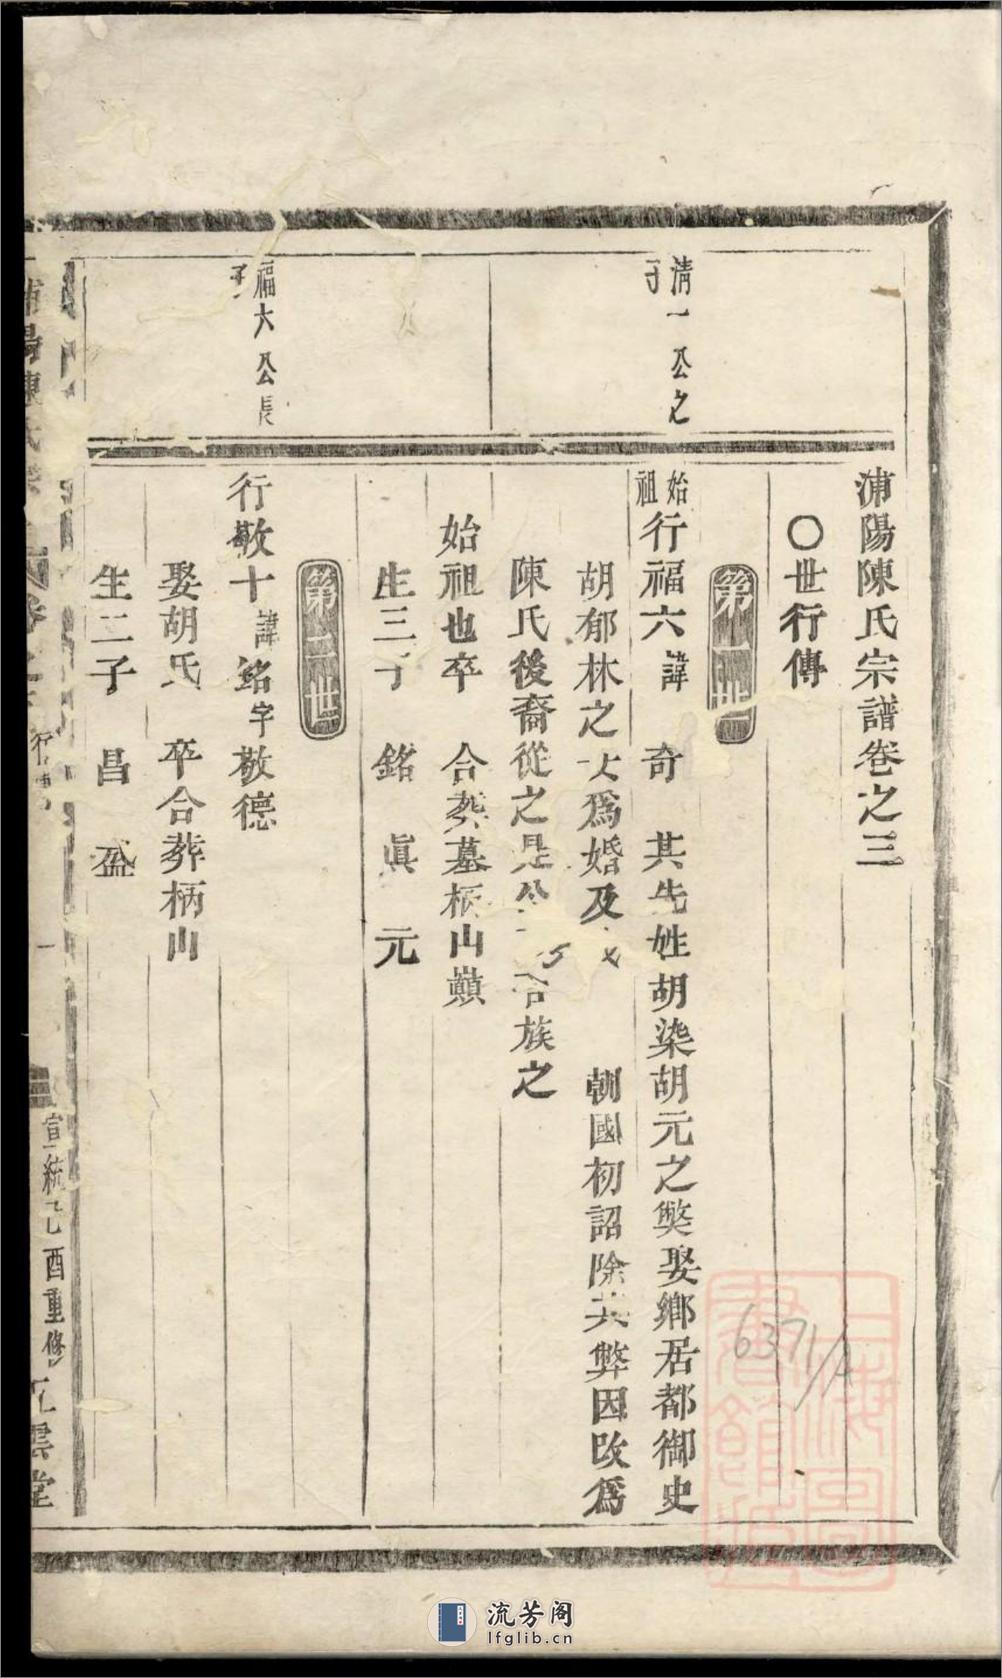 浦陽陳氏宗譜卷之三
〇世行傳
第一世
清一公之子
始祖行福六諱奇其先姓胡染胡元之獘娶鄉居都御史
胡郁林之女為婚及 朝國初詔除其弊因改為
陳氏後裔從之是 合族之
始祖也卒 合葬墓柄山巔
生三子 銘 眞 元
第二世
福六公長子
行敬十諱銘字敬德
娶胡氏 卒合葬柄山
生二子 昌 盈
浦陽陳氏宗 卷之 行傳 一 宣統己酉重修 五雲堂
6371/A
上海圖書館藏
流芳阁
lfglib.cn